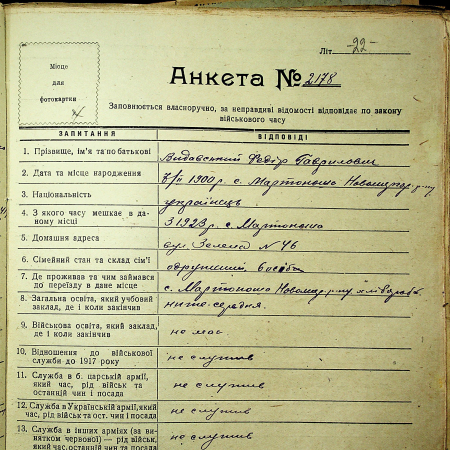 Літ -22-
Місце
для
фотокартки
Анкета № 2178
Заповнюється власноручно, за неправдиві відомості відповідає по закону
військового часу
ЗАПИТАННЯ ВІДПОВІДІ
1. Прізвище, ім'я та по батькові Федір Гаврилович
2. Дата та місце народження 1900 р. с. Мартоноша
3. Національність українець
4. З якого часу мешкає в да-
ному місці З 1923 р. с. Мартоноша
5. Домашня адреса вул. Зелена N 46
6. Сімейний стан та склад сім'ї одружений,
7. Де проживав та чим займався
до переїзду в дане місце с. Мартоноша
8. Загальна освіта, який учбовий
заклад, де і коли закінчив
9. Військова освіта, який заклад,
де і коли закінчив не має
10. Відношення до військової
служби до 1917 року не служив
11. Служба в б. царській армії,
який час, рід військ та
останній чин і посада не служив
12. Служба в Українській армії, який
час, рід військ та ост. чин і посада не служив
13. Служба в інших арміях (за ви-
нятком червоної) — рід військ,
який час, останній чин та посада не служив